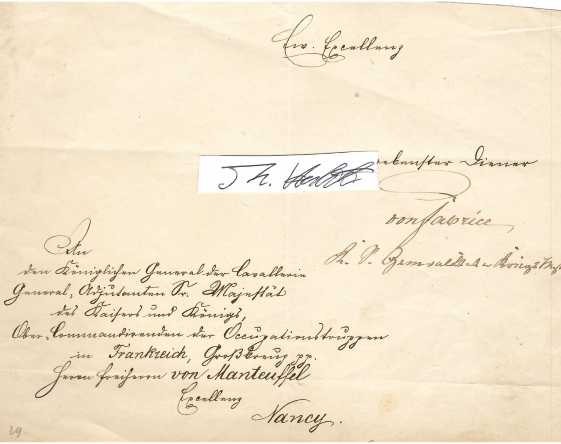 Ew. Excellenz
ebenster Diener
von Fabrice
K. S.
An
den Königlichen General der Cavallerie
General-Adjutanten Sr. Majestät
des Kaisers und Königs,
Ober-Commandirenden der Occupationstruppen
in Frankreich, Großkreuz pp.
Herrn Freiherrn von Manteuffel
Excellenz
Nancy.